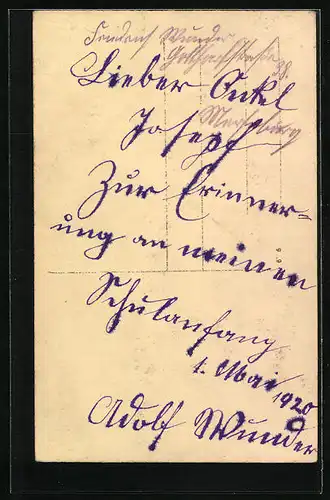 Friedrich Wunder
Gotthardtstraße 38.
Merseburg
Lieber Onkel
Josepf
Zur Erinner=
ung an meinen
Schulanfang
1. Mai 1920
Adolf Wunder